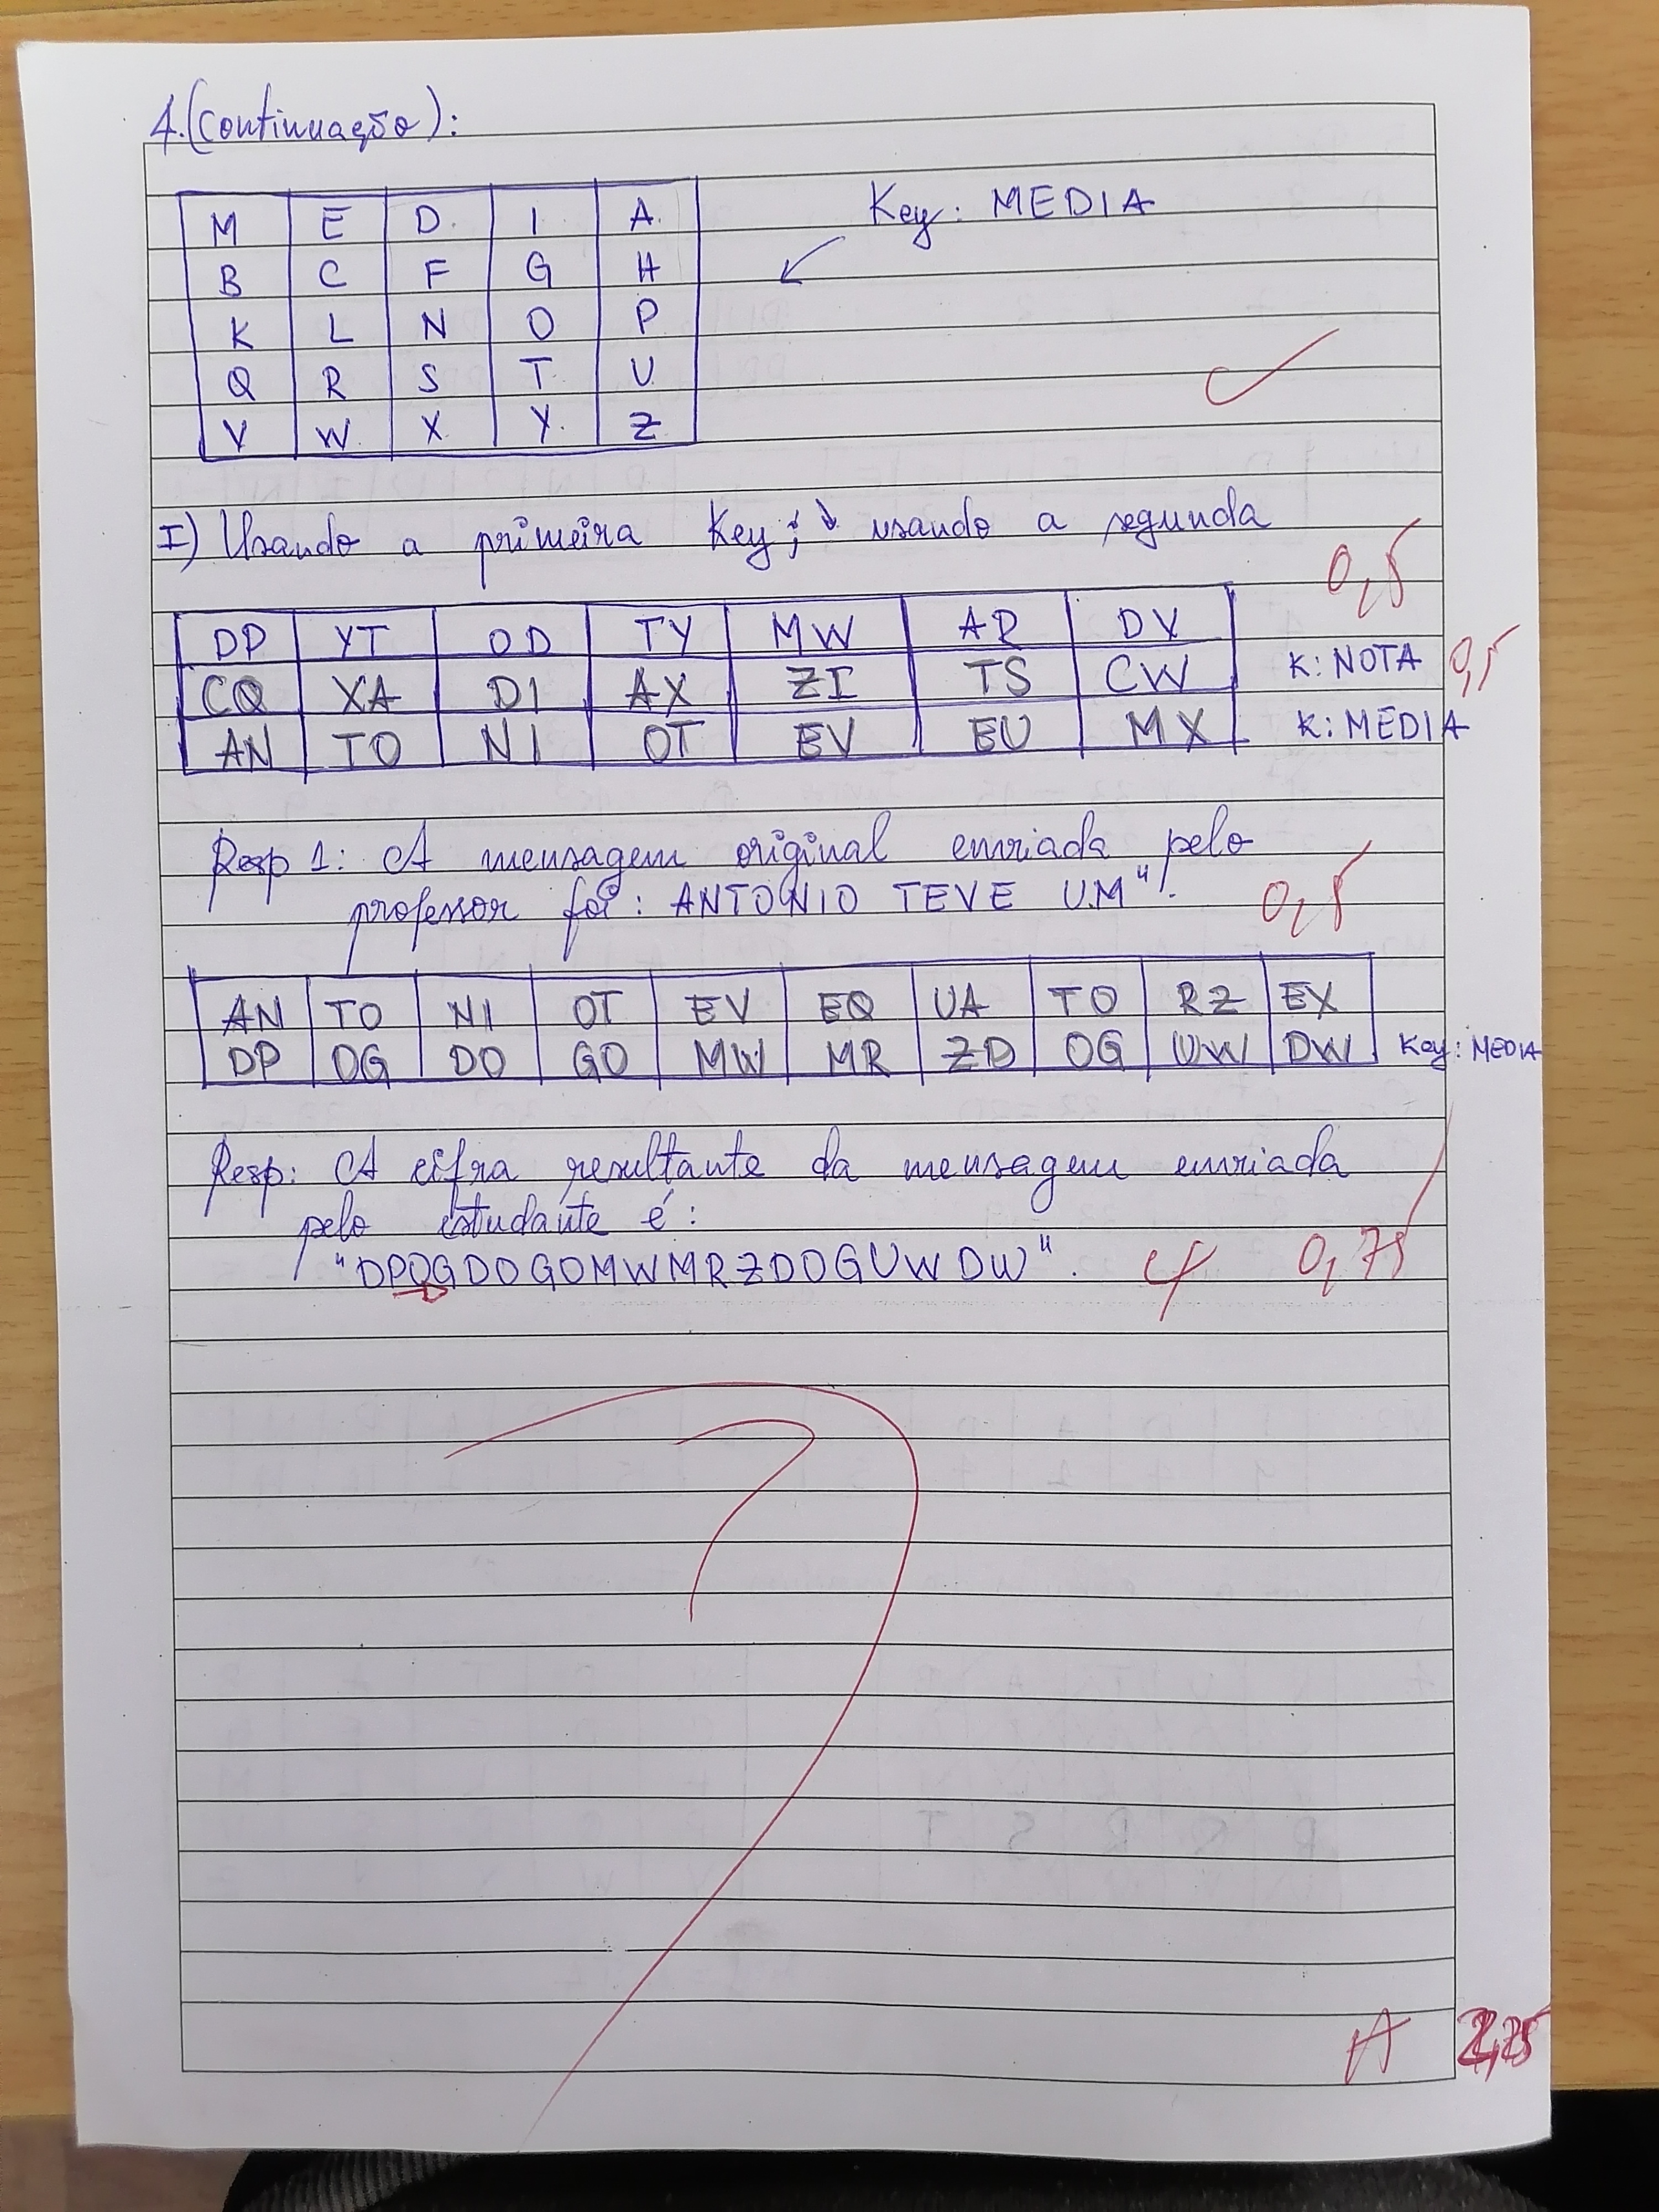 4.(Continuação):
M E D I A
Key: MEDIA
B C F G H
K L N O P
Q R S T U
V W X Y Z
I) Usando a primeira Key; usando a segunda
0,5
DP YT OD TY MW AR DV
CQ XA DI AX ZI TS CW K: NOTA 0,5
AN TO NI OT EV EU MX K: MEDIA
Resp 1: A mensagem original enviada pelo
professor foi: ANTONIO TEVE UM".
0,5
AN TO NI OT EV EQ UA TO RZ EX
DP OG DO GO MW MR ZD OG UW DW Key: MEDIA
Resp: A cifra resultante da mensagem enviada
pelo estudante é:
"DPOGDOGOMWMRZDOGUWDW". 0,75